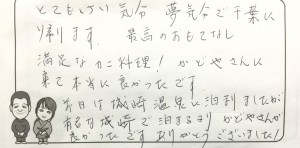 とてもいい気分 夢気分で千葉に
帰ります。 最高のおもてなし
満足なカニ料理！かどやさんに
来て本当に良かったです
前日は城崎温泉に泊りましたが
有名な城崎で泊まるより かどやさんが
良かったです ありがとうございました！